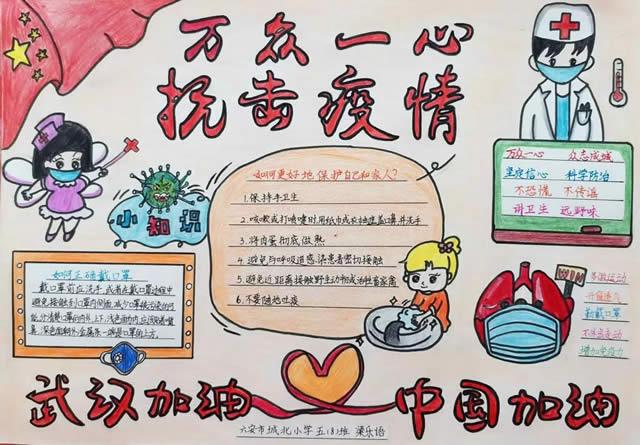 万众一心
抗击疫情
小知识
如何更好地保护自己和家人?
1.保持手卫生
2.咳嗽或打喷嚏时用纸巾或衣袖遮盖口鼻并洗手
3.将肉蛋彻底做熟
4.避免与呼吸道感染患者密切接触
5.避免近距离接触野生动物或治触畜家禽
6.不要随地吐痰
万众一心 众志成城
坚定信心 科学防治
不恐慌 不传谣
讲卫生 远野味
如何正确戴口罩
戴口罩前应洗手,或者在戴口罩过程中
避免接触到口罩内侧面,减少口罩被污染的可
能.分清楚口罩的内外上下,
WIN
多做运动
开窗通气
勤戴口罩
增加免疫力
武汉加油
中国加油
六安市城北小学五(8)班 梁乐语